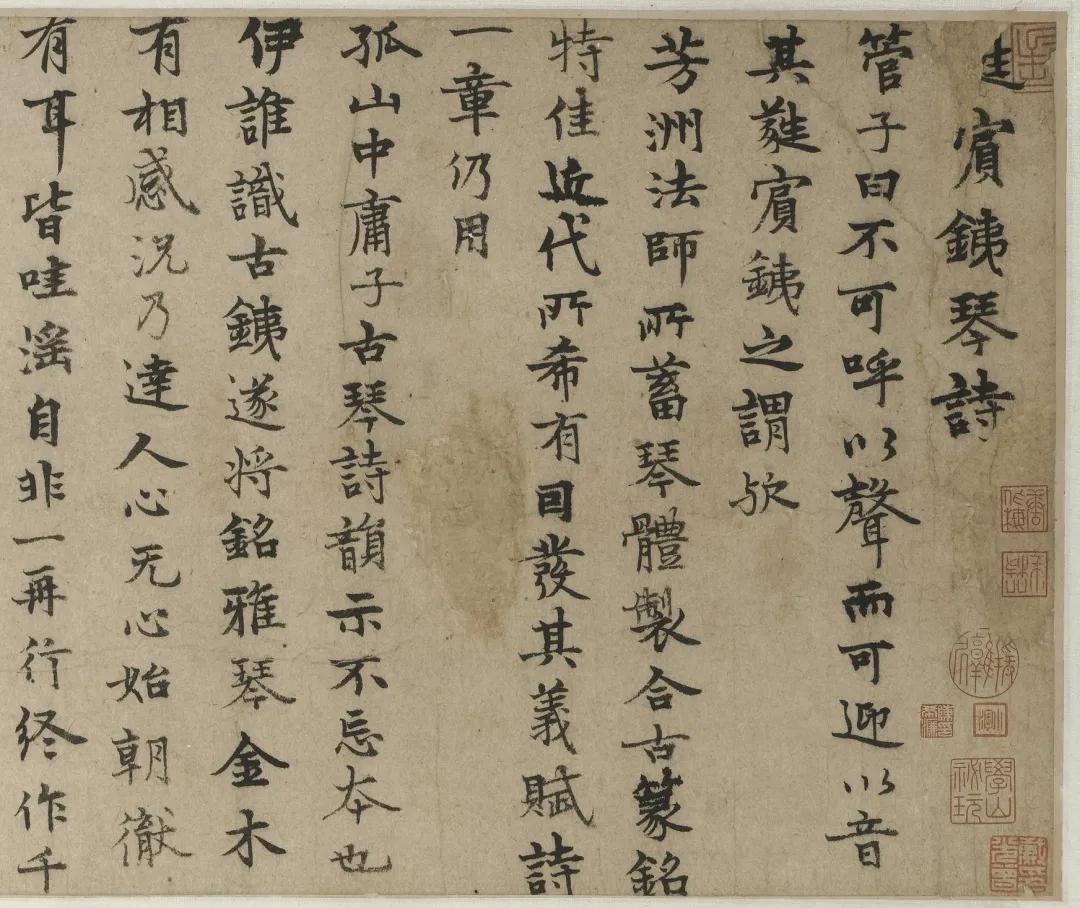 賓鐵琴詩
管子曰不可呼以聲而可迎以音
其蕤賓鐵之謂歟
芳洲法師所蓄琴體製合古篆銘
特佳近代所希有因發其義賦詩
一章仍用
孤山中庸子古琴詩韻示不忘本也
伊誰識古鐵遂將銘雅琴金木
有相感況乃達人心无心始朝徹
有耳皆哇滛自非一再行終作千